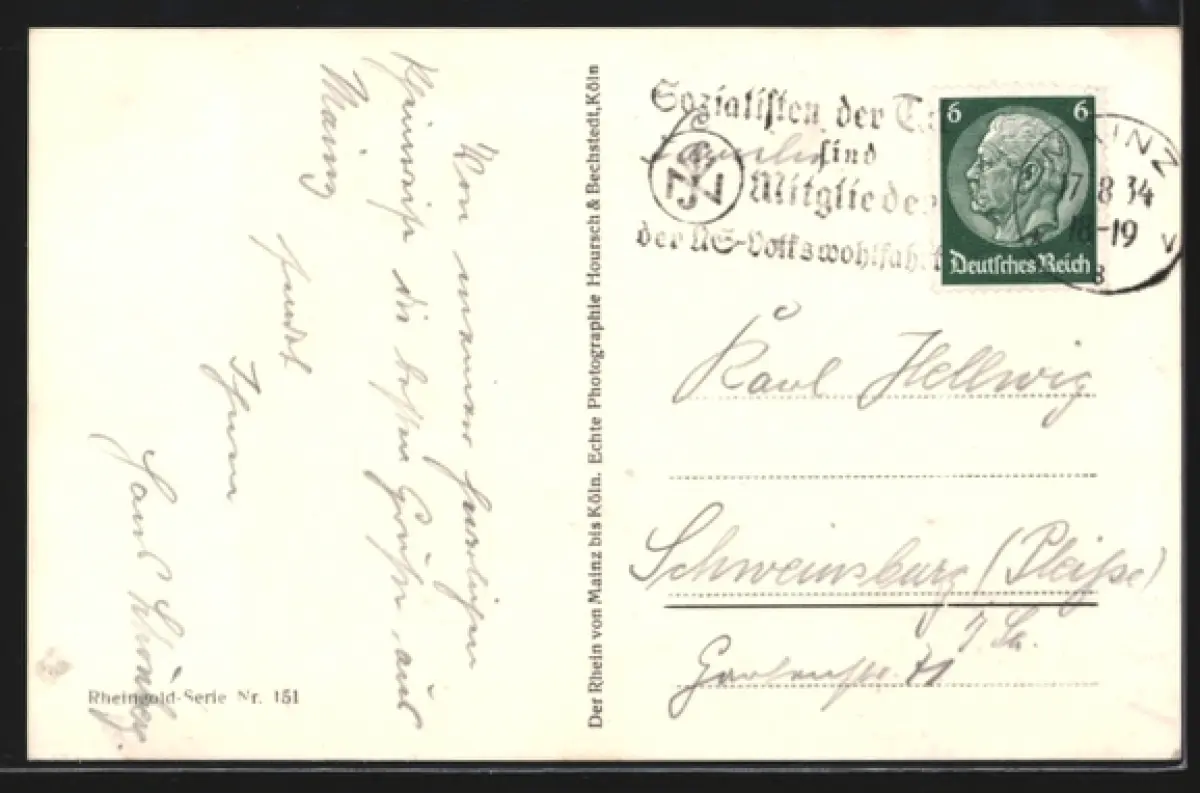 Von meiner herrlichen
Rheinreise die besten Grüße aus
Mainz
sendet
Ihnen
Hans
Rheingold-Serie Nr. 151
Der Rhein von Mainz bis Köln. Echte Photographie Hoursch & Bechstedt, Köln
Sozialisten der
sind
Mitglieder
der NS-Volkswohlfahrt
6 6
Deutsches Reich
MAINZ
17.8 34
18-19
Familie
Karl Hellwig
Schweinsburg (Pleiße)
i. Sa.
Gartenstr. 71